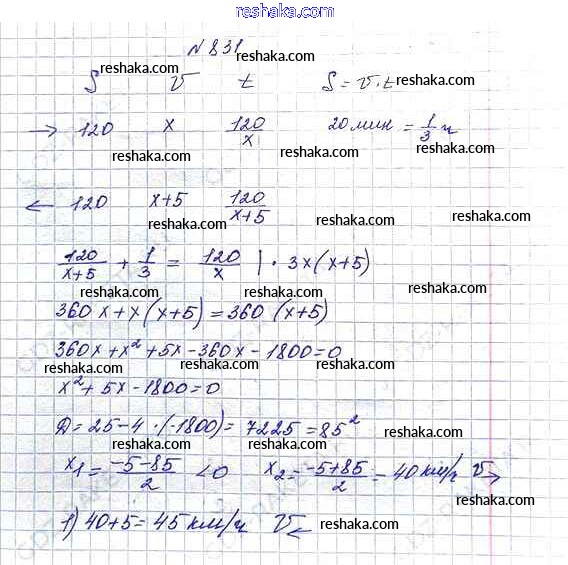 reshaka.com
N 831
reshaka.com reshaka.com
S v t S = v · t
reshaka.com
→ 120 x 120/x 20 мин = 1/3 ч
reshaka.com reshaka.com
← 120 x+5 120/(x+5)
reshaka.com reshaka.com
120/(x+5) + 1/3 = 120/x | · 3x(x+5)
reshaka.com reshaka.com
360x + x(x+5) = 360(x+5)
reshaka.com reshaka.com
360x + x² + 5x - 360x - 1800 = 0
reshaka.com
x² + 5x - 1800 = 0
reshaka.com
D = 25 - 4 · (-1800) = 7225 = 85²
reshaka.com reshaka.com
x₁ = (-5-85)/2 < 0 x₂ = (-5+85)/2 = 40 км/ч v→
reshaka.com reshaka.com
1) 40+5 = 45 км/ч v←
reshaka.com reshaka.com